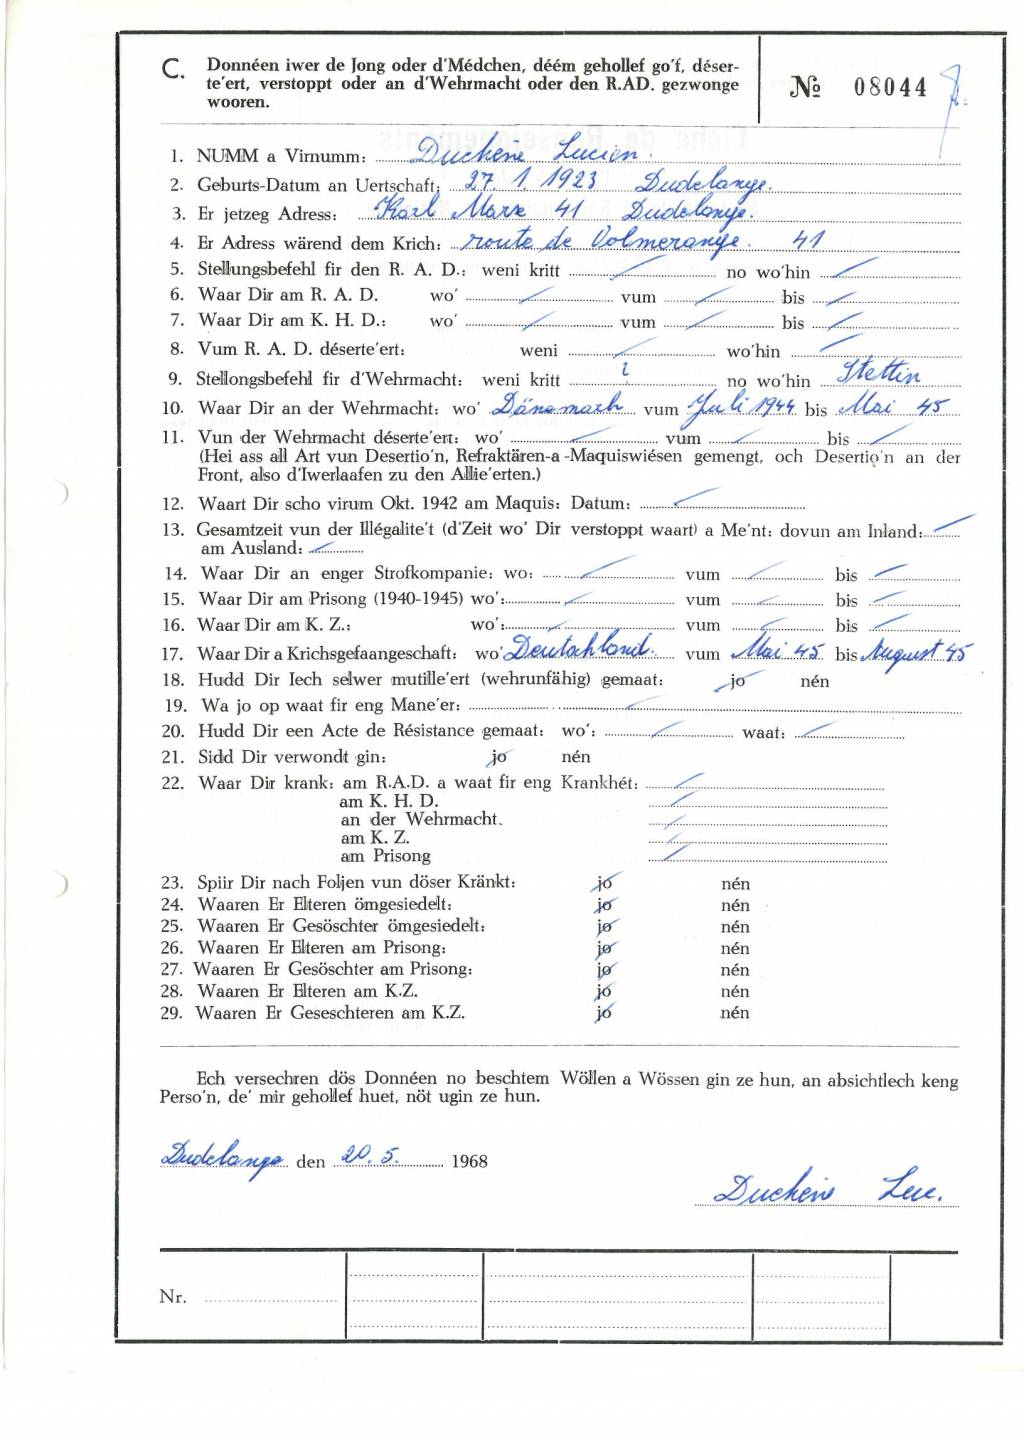 C. Donnéen iwer de Jong oder d'Médchen, déém gehollef go'f, déser-
te'ert, verstoppt oder an d'Wehrmacht oder den R.AD. gezwonge
wooren.
№ 08044
1. NUMM a Virnumm: Duchene Lucien.
2. Geburts-Datum an Uertschaft: 27. 1. 1923 Dudelange.
3. Er jetzeg Adress: Karl Marx 41 Dudelange.
4. Er Adress wärend dem Krich: route de Volmerange. 41
5. Stellungsbefehl fir den R. A. D.: weni kritt / no wo'hin /
6. Waar Dir am R. A. D. wo' / vum / bis /
7. Waar Dir am K. H. D.: wo' / vum / bis /
8. Vum R. A. D. déserte'ert: weni / wo'hin /
9. Stellongsbefehl fir d'Wehrmacht: weni kritt ? no wo'hin Stettin
10. Waar Dir an der Wehrmacht: wo' Dänemark vum Juli 1944 bis Mai 45
11. Vun der Wehrmacht déserte'ert: wo' / vum / bis /
(Hei ass all Art vun Desertio'n, Refraktären-a-Maquiswiésen gemengt, och Desertio'n an der
Front, also d'Iwerlaafen zu den Allie'erten.)
12. Waart Dir scho virum Okt. 1942 am Maquis: Datum: /
13. Gesamtzeit vun der Illégalite't (d'Zeit wo' Dir verstoppt waart) a Me'nt: dovun am Inland: /
am Ausland: /
14. Waar Dir an enger Strofkompanie: wo: / vum / bis /
15. Waar Dir am Prisong (1940-1945) wo': / vum / bis /
16. Waar Dir am K. Z.: wo': / vum / bis /
17. Waar Dir a Krichsgefaangeschaft: wo' Deutschland. vum Mai 45 bis August 45
18. Hudd Dir Iech selwer mutille'ert (wehrunfähig) gemaat: jo nén
19. Wa jo op waat fir eng Mane'er: /
20. Hudd Dir een Acte de Résistance gemaat: wo': / waat: /
21. Sidd Dir verwondt gin: jo nén
22. Waar Dir krank: am R.A.D. a waat fir eng Krankhét: /
am K. H. D. /
an der Wehrmacht. /
am K. Z. /
am Prisong /
23. Spiir Dir nach Foljen vun döser Kränkt: jo nén
24. Waaren Er Elteren ömgesiedelt: jo nén
25. Waaren Er Gesöschter ömgesiedelt: jo nén
26. Waaren Er Elteren am Prisong: jo nén
27. Waaren Er Gesöschter am Prisong: jo nén
28. Waaren Er Elteren am K.Z. jo nén
29. Waaren Er Geseschteren am K.Z. jo nén
Ech versechren dös Donnéen no beschtem Wöllen a Wössen gin ze hun, an absichtlech keng
Perso'n, de' mir gehollef huet, nöt ugin ze hun.
Dudelange den 20. 5. 1968
Duchene Luc.
Nr.